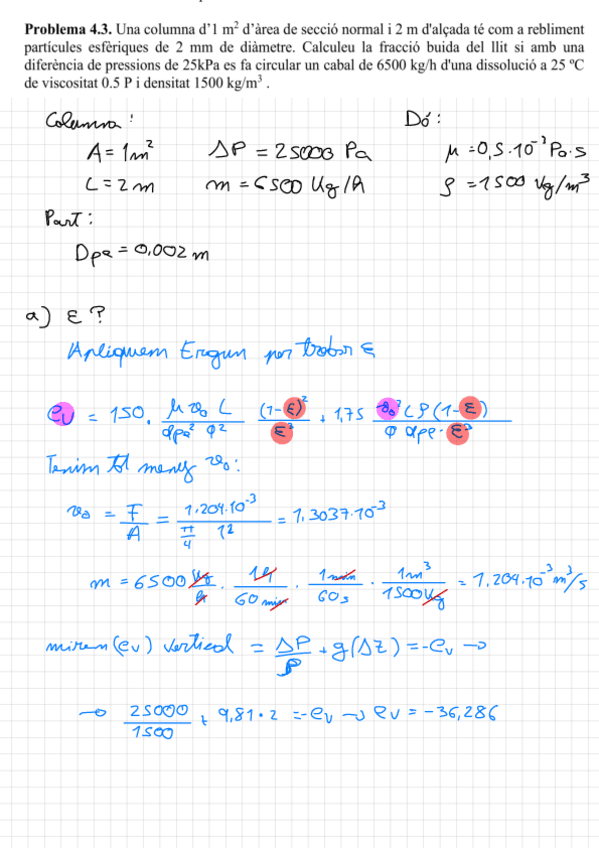 Problema 4.3. Una columna d'1 m² d'àrea de secció normal i 2 m d'alçada té com a rebliment
partícules esfèriques de 2 mm de diàmetre. Calculeu la fracció buida del llit si amb una
diferència de pressions de 25kPa es fa circular un cabal de 6500 kg/h d'una dissolució a 25 ºC
de viscositat 0.5 P i densitat 1500 kg/m³ .
Columna: Dó:
A = 1m² ΔP = 25000 Pa μ = 0,5·10⁻¹ Pa·s
L = 2m m = 6500 Kg/h ρ = 1500 Kg/m³
Part:
Dpe = 0,002 m
a) ε ?
Apliquem Ergun per trobar ε
eᵥ = 150 · μ v₀ L / dpe² φ² (1-ε)² / ε³ + 1,75 v₀² L ρ (1-ε) / φ dpe · ε³
Tenim tot menys v₀:
v₀ = F/A = 1,204·10⁻³ / π/4 1² = 1,3037·10⁻³
m = 6500 Kg/h · 1h/60 min · 1min/60s · 1m³/1500Kg = 1,204·10⁻³ m³/s
mirem (eᵥ) vertical = ΔP/ρ + g(Δz) = -eᵥ →
→ 25000/1500 + 9,81 · 2 = -eᵥ → eᵥ = -36,286